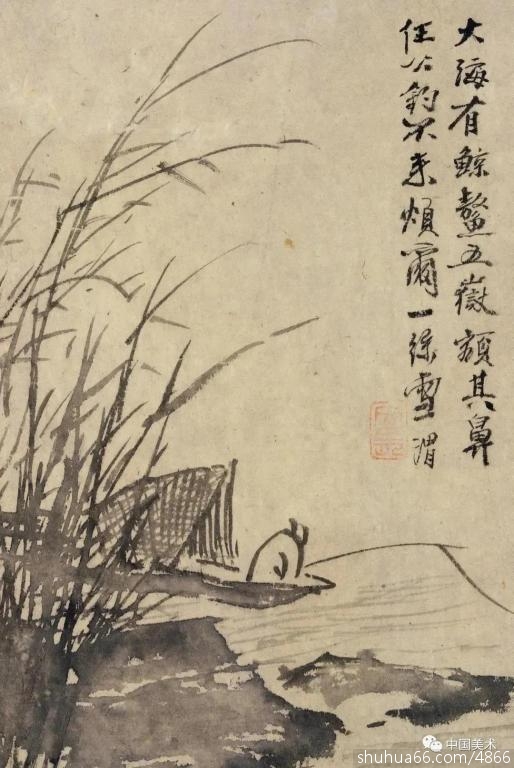 大海有鯨鰲五嶽額其鼻
任公釣不来煩爾一絲雪 渭
中国美术
shuhua66.com/4866